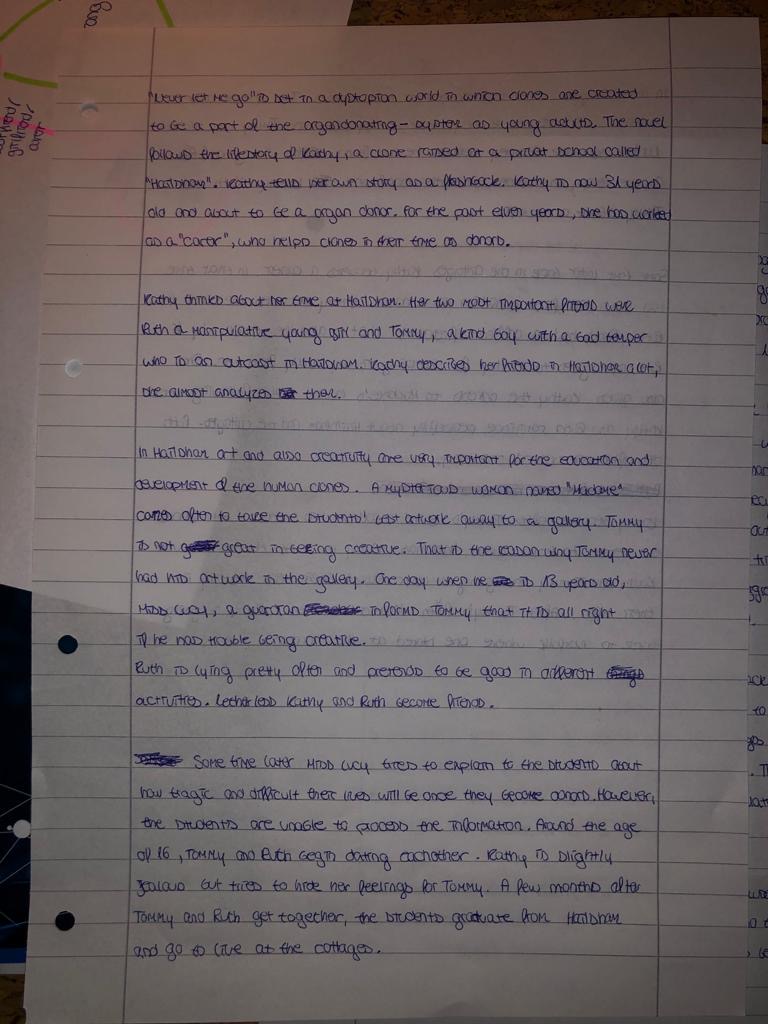 "Never let me go" is set in a dystopian world in which clones are created
to be a part of the organdonating - system as young adults. The novel
follows the lifestory of Kathy, a clone raised at a privat school called
"Hailsham". Kathy tells her own story as a flashback. Kathy is now 31 years
old and about to be a organ donor. For the past elven years, she has worked
as a "carer", who helps clones in their time as donors.
Kathy thinks about her time at Hailsham. Her two most important friends were
Ruth a manipulative young girl and Tommy, a kind boy with a bad temper
who is an outcast in Hailsham. Kathy describes her friends in Hailsham alot,
she almost analyzes them.
In Hailsham art and also creativity are very important for the education and
development of the human clones. A mysterious woman named "Madame"
comes often to take the students' best artwork away to a gallery. Tommy
is not great in being creative. That is the reason why Tommy never
had his artwork in the gallery. One day when he is 13 years old,
Miss Lucy, a guardian informs Tommy that it is all right
if he has trouble being creative.
Ruth is lying pretty often and pretends to be good in different
activities. Kathy and Ruth become friends.
Some time later Miss Lucy tries to explain to the students about
how tragic and difficult their lives will be once they become donors. However,
the students are unable to process the information. Around the age
of 16, Tommy and Ruth begin dating eachother. Kathy is slightly
jealous but tries to hide her feelings for Tommy. A few months after
Tommy and Ruth get together, the students graduate from Hailsham
and go to live at the cottages.